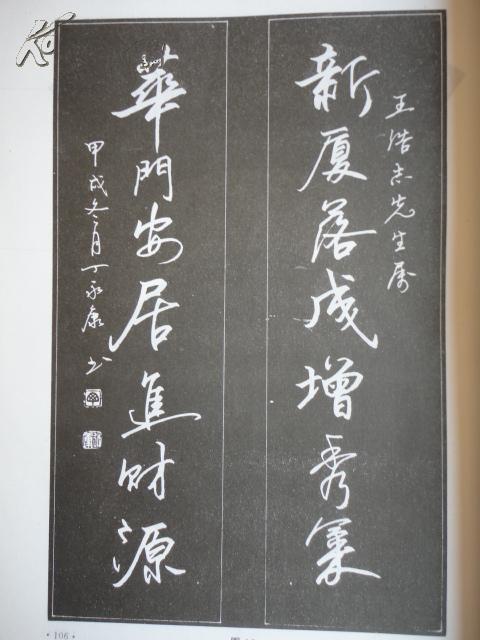 王浩志先生属
新厦落成增秀氣
華門安居進财源
甲戌冬月丁永康书
·106·